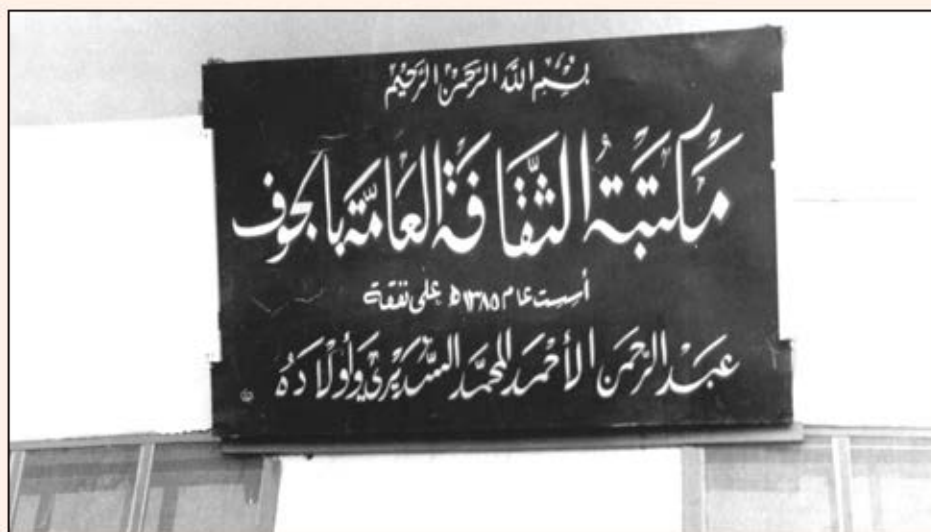 بِسْمِ اللَّهِ الرَّحْمٰنِ الرَّحِيْمِ
مَكتَبَةُ الثَّقَافَة العَامَّة بِالجَوف
أسست عام ١٣٨٥ھ على نفقة
عَبْد الرَّحْمَن الأحْمَد المحمَّد السّديَريْ وَأوْلَادَهُ